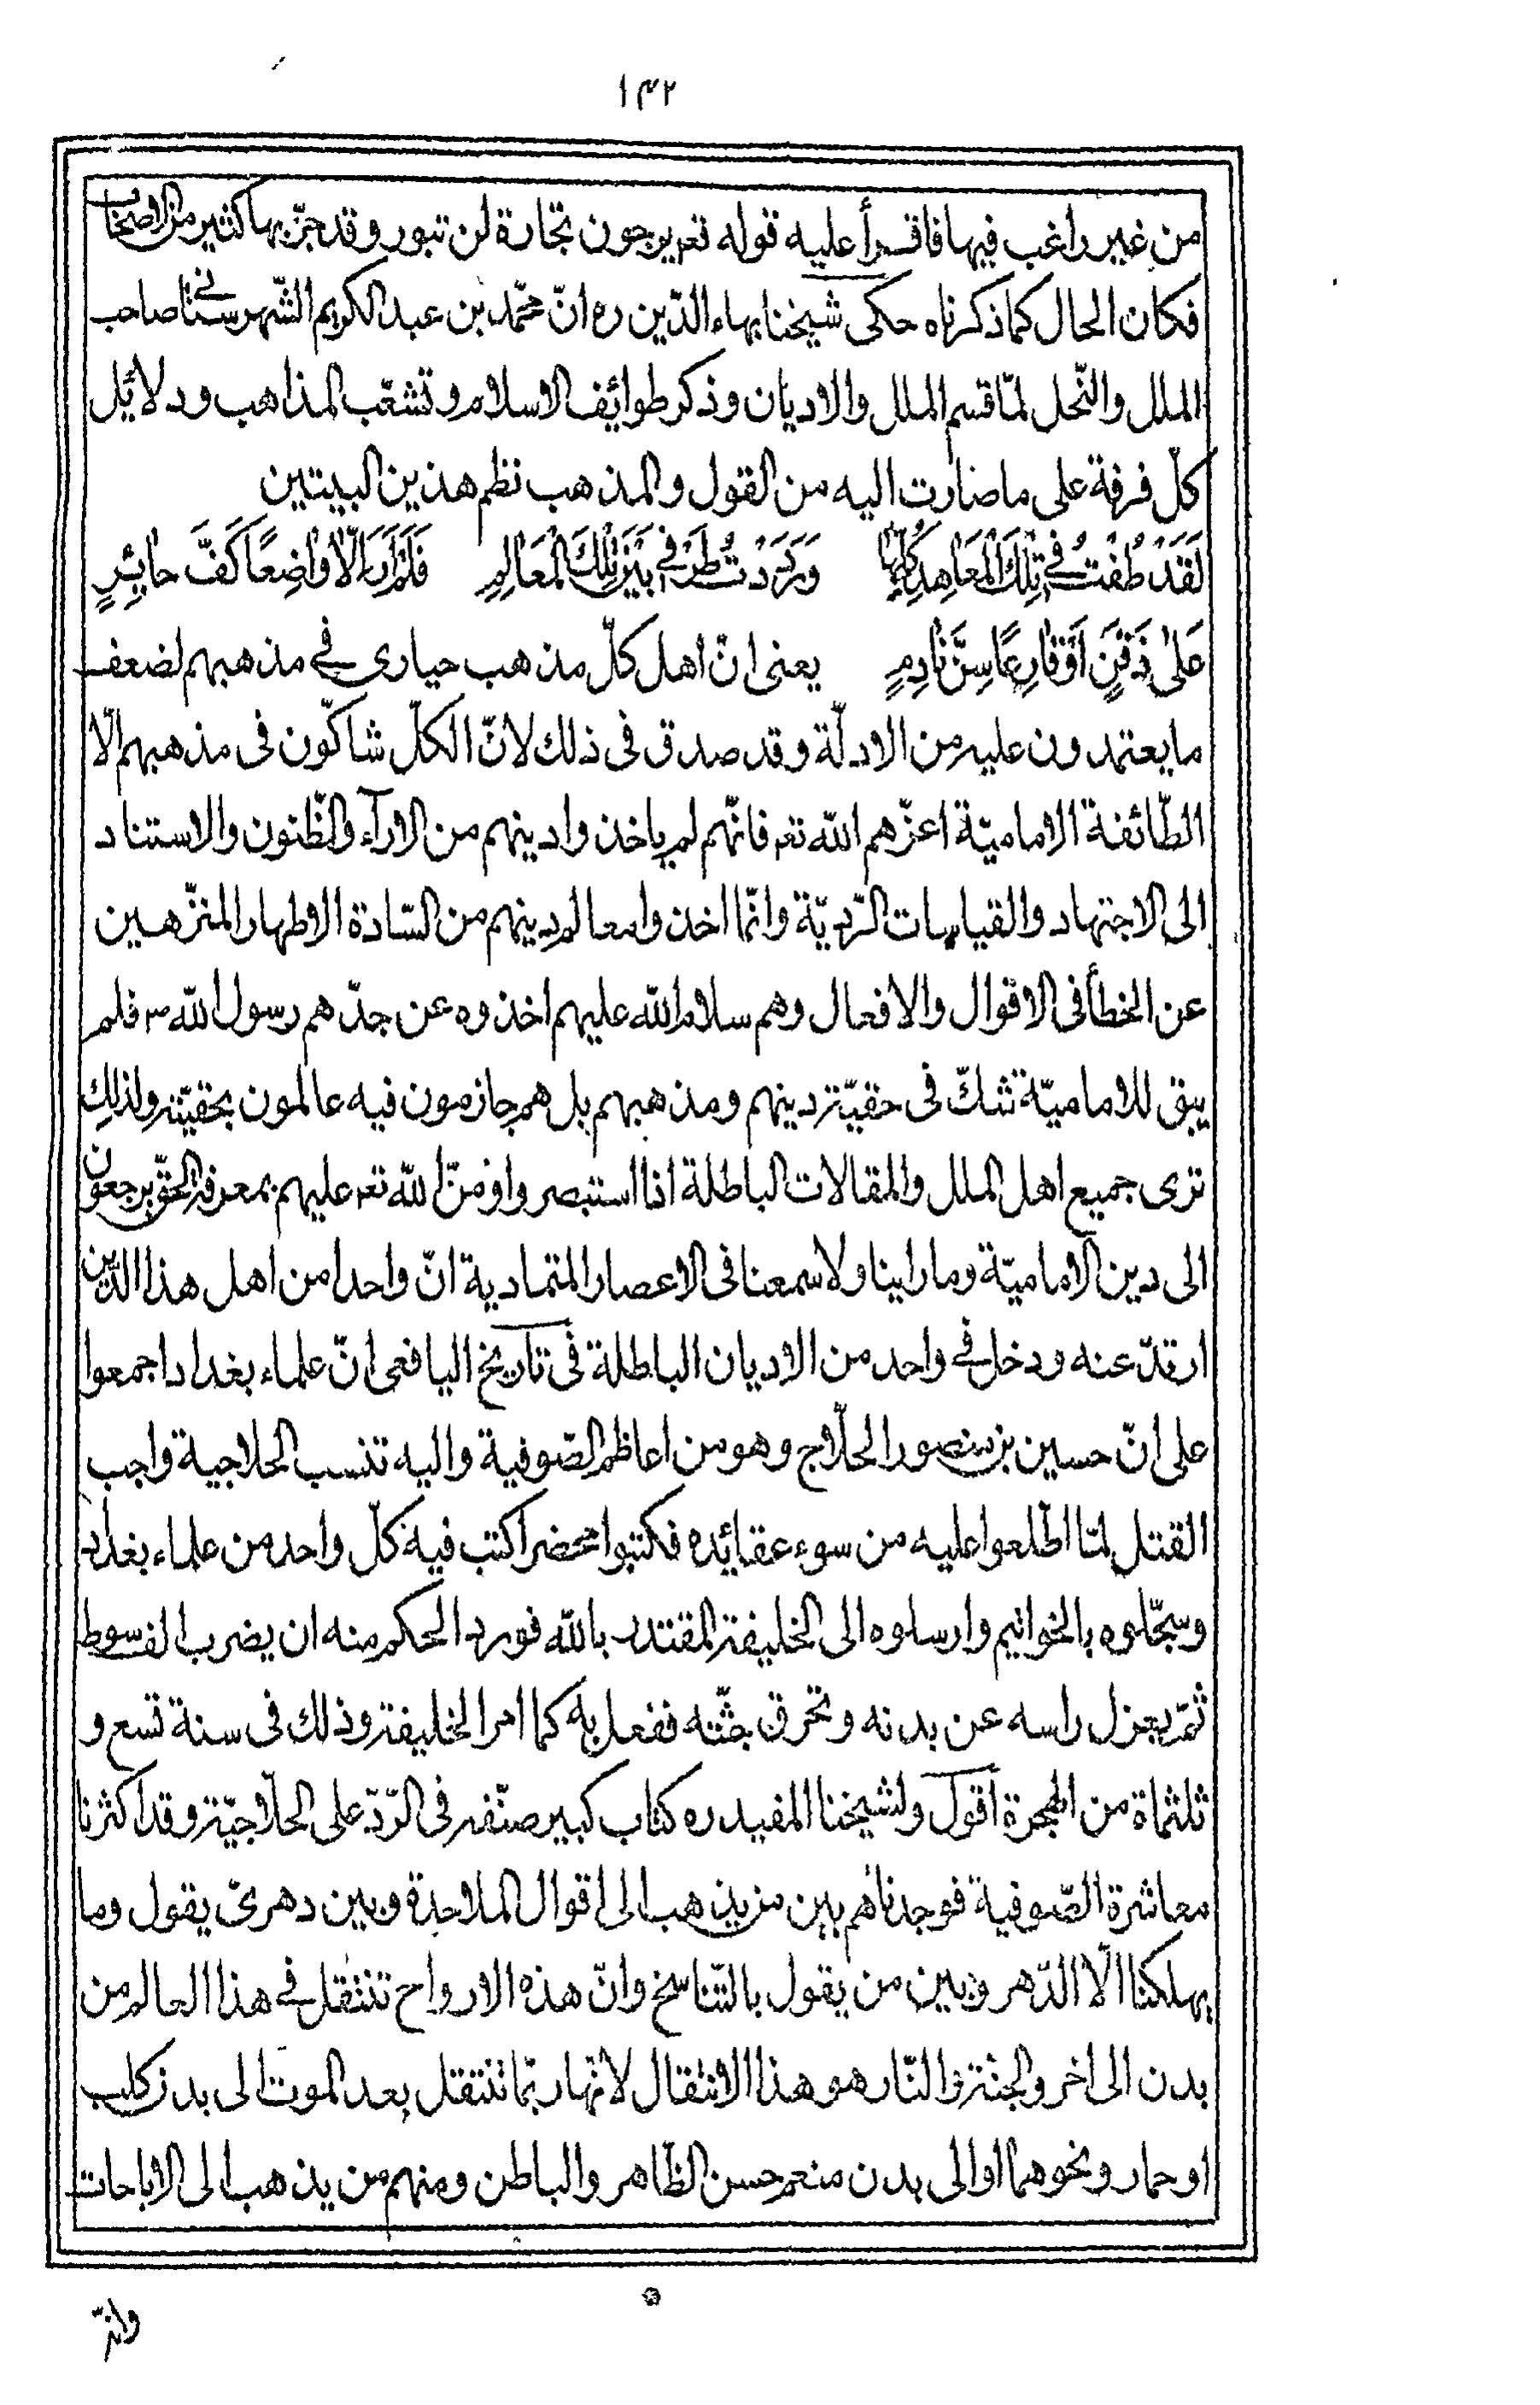 ١٤٢
من غير راغب فيها فاقرأ عليه قوله تعم يرجون تجارة لن تبور وقد جرّبها كثير من الاصحاب
فكان الحال كما ذكرناه حكى شيخنا بهاء الدّين ره انّ محمّد بن عبد الكريم الشّهرستانى صاحب
الملل والنّحل لمّا قسم الملل والاديان وذكر طوايف الاسلام وتشعّب المذاهب ودلائل
كلّ فرقة على ما صارت اليه من القول والمذهب نظم هذين البيتين
لَقَدْ طُفْتُ فِي تِلْكَ الْمَعَاهِدِ كُلِّهَا وَرَدَدْتُ طَرْفِي بَيْنَ تِلْكَ الْمَعَالِمِ فَلَمْ أَرَ إِلَّا وَاضِعًا كَفَّ حَائِرٍ
عَلَى ذَقَنٍ أَوْ قَارِعًا سِنَّ نَادِمٍ يعنى انّ اهل كلّ مذهب حيارى في مذهبهم لضعف
ما يعتمدون عليه من الادلّة وقد صدق فى ذلك لانّ الكلّ شاكّون فى مذهبهم الّا
الطّائفة الاماميّة اعزّهم الله تعم فانّهم لم ياخذوا دينهم من الاراء والظّنون والاستناد
الى الاجتهاد والقياسات الرّديّة وانّما اخذوا معالم دينهم من السّادة الاطهار المنزّهين
عن الخطأ فى الاقوال والافعال وهم سلام الله عليهم اخذوه عن جدّهم رسول الله ص فلم
يبق للاماميّة شكّ فى حقيّة دينهم ومذهبهم بل هم جازمون فيه عالمون بحقيّته ولذلك
ترى جميع اهل الملل والمقالات الباطلة اذا استبصروا ومنّ الله تعم عليهم بمعرفة الحقّ يرجعون
الى دين الاماميّة وما راينا ولا سمعنا فى الاعصار المتمادية انّ واحدا من اهل هذا الدّين
ارتدّ عنه ودخل في واحد من الاديان الباطلة فى تاريخ اليافعى انّ علماء بغداد اجمعوا
على انّ حسين بن منصور الحلّاج وهو من اعاظم الصّوفية واليه تنسب الحلاجية واجب
القتل لمّا اطّلعوا عليه من سوء عقايده فكتبوا محضرا كتب فيه كلّ واحد من علماء بغداد
وسجّلوه بالخواتيم وارسلوه الى الخليفة المقتدر بالله فورد الحكم منه ان يضرب الف سوط
ثمّ يعزل راسه عن بدنه وتحرق جثّته ففعل به كما امر الخليفة وذلك فى سنة تسع و
ثلثماة من الهجرة اقول ولشيخنا المفيد ره كتاب كبير صنّفه فى الرّدّ على الحلّاجيّة وقد اكثرنا
معاشرة الصّوفية فوجدناهم بين من يذهب الى اقوال الملاحدة وبين دهرىّ يقول وما
يهلكنا الّا الدّهر وبين من يقول بالتّناسخ وانّ هذه الارواح تنتقل في هذا العالم من
بدن الى اخر والجنّة والنّار هو هذا الانتقال لانّها ربّما تنتقل بعد الموت الى بدن كلب
او حمار ونحوهما او الى بدن منعم حسن الظّاهر والباطن ومنهم من يذهب الى الاباحات
وانّه